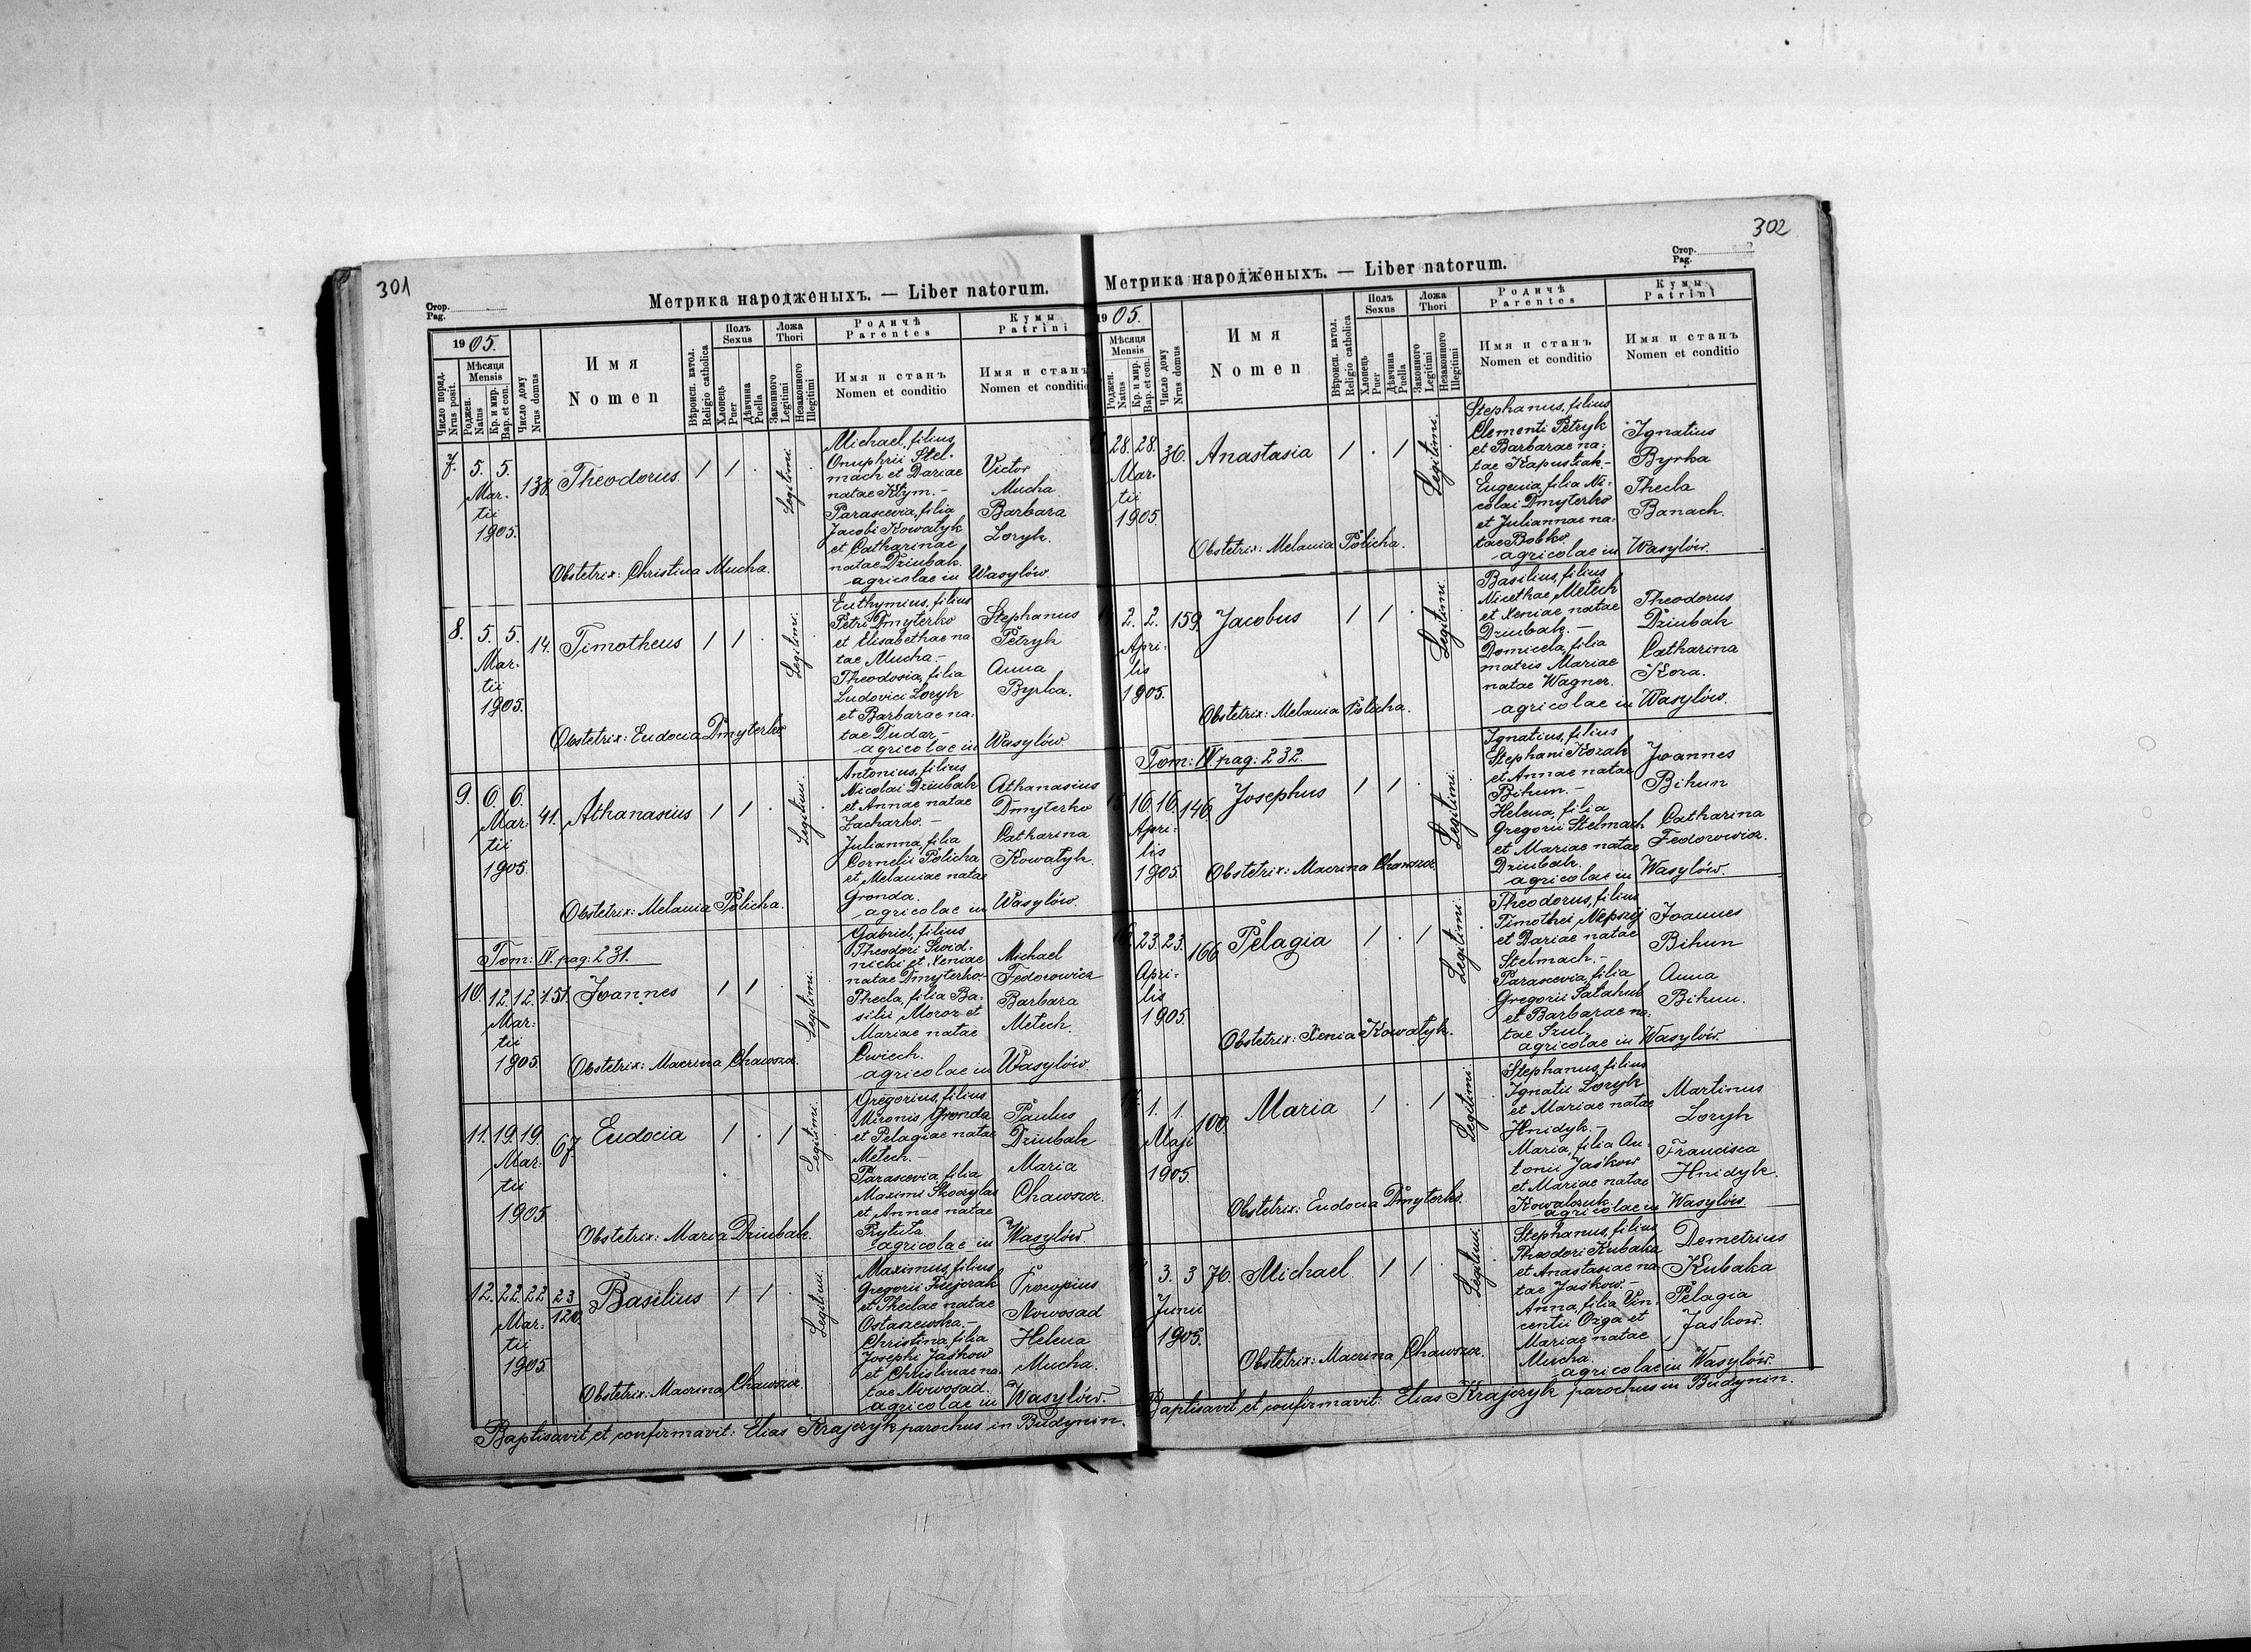 301
Стор.
Pag.
Метрика народженыхъ. — Liber natorum.
1905.
Число поряд.
Nrus posit.
Мѣсяця
Mensis
Рожден.
Natus
Кр. и мир.
Bap. et con.
Число дому
Nrus domus
Имя
Nomen
Вѣроисп. катол.
Religio catholica
Полъ
Sexus
Хлопець
Puer
Дѣвчина
Puella
Ложа
Thori
Законного
Legitimi
Незаконного
Illegitimi
Родичѣ
Parentes
Имя и станъ
Nomen et conditio
Кумы
Patrini
Имя и станъ
Nomen et conditio
7. 5. 5. 138. Theodorus. 1 1 .
Martii
1905.
Legitimi.
Michael, filius
Onuphrii Stel-
mach et Dariae
natae Klym.-
Parascevia, filia
Jacobi Kowałyk
et Catharinae
natae Dziubak.
agricolae in Wasylów.
Victor
Mucha
Barbara
Loryk.
Obstetrix: Christina Mucha.
8. 5. 5. 14. Timotheus 1 1 .
Mar-
tii
1905.
Legitimi.
Euthymius, filius
Petri Dmyterko
et Elisabethae na
tae Mucha.-
Theodosia, filia
Ludovici Loryk
et Barbarae na-
tae Dudar.-
agricolae in Wasylów.
Stephanus
Petryk
Anna
Byrka.
Obstetrix: Eudocia Dmyterko
9. 6. 6. 41. Athanasius 1 1 .
Mar-
tii
1905.
Legitimi.
Antonius, filius
Nicolai Dziubak
et Annae natae
Zacharko.-
Julianna, filia
Cornelii Policha
et Melaniae natae
Gronda.
agricolae in Wasylów.
Athanasius
Dmyterko
Catharina
Kowałyk.
Obstetrix: Melania Policha.
Tom: IV. pag: 231.
10. 12. 12. 151. Joannes 1 1
Mar-
tii
1905.
Legitimi.
Gabriel, filius
Theodori Swid-
nicki et Xeniae
natae Dmyterko-
Thecla, filia Ba-
silii Moroz et
Mariae natae
Cwiech.
agricolae in Wasylów.
Michael
Fedorowicz
Barbara
Metech.
Obstetrix: Macrina Chawszcz.
11. 19. 19. 67. Eudocia 1 . 1
Mar-
tii
1905
Legitimi.
Gregorius, filius
Mironis Gronda
et Pelagiae natae
Metech.-
Parascevia, filia
Maximi Skoczylas
et Annae natae
Prytuła.
agricolae in Wasylów
Paulus
Dziubak
Maria
Chawszcz.
Obstetrix: Maria Dziubak.
12. 22. 22 23/120. Basilius 1 1 .
Mar-
tii
1905
Legitimi.
Maximus, filius
Gregorii
et Theclae natae
Ostaszewska.-
Christina, filia
Josephi Jaśkow
et Christinae na-
tae Nowosad.
agricolae in Wasylów.
Procopius
Nowosad
Helena
Mucha.
Obstetrix: Macrina Chawszcz
Baptisavit et confirmavit: Elias Krajczyk parochus in Budynin.
302
Стор.
Pag.
Метрика народженыхъ. — Liber natorum.
1905.
Мѣсяця
Mensis
Рожден.
Natus
Кр. и мир.
Bap. et con.
Число дому
Nrus domus
Имя
Nomen
Вѣроисп. катол.
Religio catholica
Полъ
Sexus
Хлопець
Puer
Дѣвчина
Puella
Ложа
Thori
Законного
Legitimi
Незаконного
Illegitimi
Родичѣ
Parentes
Имя и станъ
Nomen et conditio
Кумы
Patrini
Имя и станъ
Nomen et conditio
28. 28. 36. Anastasia 1 . 1
Mar-
tii
1905.
Legitimi.
Stephanus, filius
Clementi Petryk
et Barbarae na-
tae Kapustiak.-
Eugenia, filia Ni-
colai Dmyterko
et Juliannae na-
tae Bobko.
agricolae in Wasylów.
Ignatius
Byrka
Thecla
Banach.
Obstetrix: Melania Policha.
2. 2. 159. Jacobus 1 1 .
Apri-
lis
1905.
Legitimi.
Basilius, filius
Nicethae Metech
et Xeniae natae
Dziubak.-
Domicela, filia
matris Mariae
natae Wagner.
agricolae in Wasylów.
Theodorus
Dziubak
Catharina
Koza.
Obstetrix: Melania Policha.
Tom: IV. pag: 232.
16. 16. 146. Josephus 1 1 .
Apri-
lis
1905.
Legitimi.
Ignatius, filius
Stephani Kozak
et Annae natae
Bihun.-
Helena, filia
Gregorii Stelmach
et Mariae natae
Dziubak.
agricolae in Wasylów.
Joannes
Bihun
Catharina
Fedorowicz.
Obstetrix: Macrina Chawszcz
23. 23. 166 Pelagia 1 . 1
Apri-
lis
1905.
Legitimi.
Theodorus, filius
Timothei
et Dariae natae
Stelmach.-
Parascevia, filia
Gregorii Sałahub
et Barbarae na-
tae Szul.
agricolae in Wasylów.
Joannes
Bihun
Anna
Bihun.
Obstetrix: Xenia Kowałyk.
1. 1. 100. Maria 1 . 1
Maji
1905.
Legitimi.
Stephanus, filius
Ignatii Loryk
et Mariae natae
Hnidyk.-
Maria, filia An-
tonii Jaśkow
et Mariae natae
Kowalczuk
agricolae in Wasylów
Martinus
Loryk
Francisca
Hnidyk.
Obstetrix: Eudocia Dmyterko.
3. 3 76. Michael 1 1
Junii
1905.
Legitimi.
Stephanus, filius
Theodori Kubaka
et Anastasiae na-
tae Jaśkow.-
Anna, filia Vin-
centii Ozga et
Mariae natae
Mucha.
agricolae in Wasylów.
Demetrius
Kubaka
Pelagia
Jaśkow.
Obstetrix: Macrina Chawszcz.
Baptisavit et confirmavit: Elias Krajczyk parochus in Budynin.